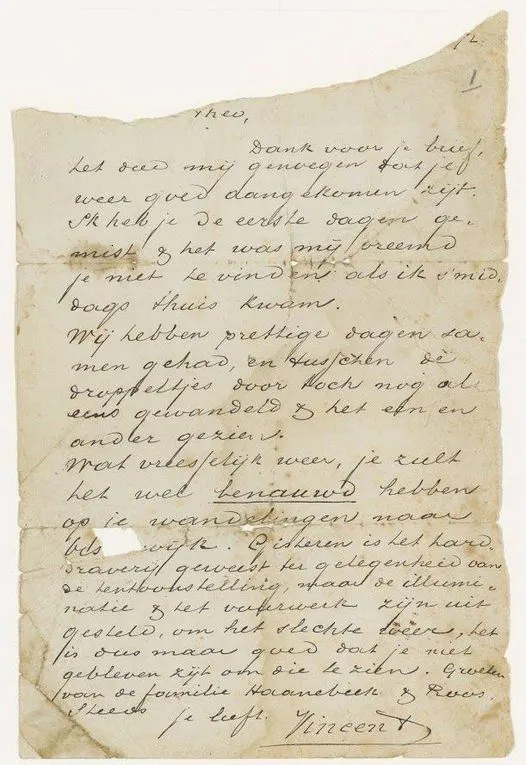 72.
1
Theo,
Dank voor je brief,
het deed mij genoegen dat je
weer goed aangekomen zijt.
Ik heb je de eerste dagen ge-
mist & het was mij vreemd
je niet te vinden als ik s'mid-
dags thuis kwam.
Wij hebben prettige dagen sa-
men gehad, en tusschen de
droppeltjes door toch nog al
eens gewandeld & het een en
ander gezien.
Wat vreesselijk weer, je zult
het wel benauwd hebben
op je wandelingen naar
wijk. Gisteren is het hard-
draverij geweest ter gelegenheid van
de tentoonstelling, maar de illumi-
natie & het vuurwerk zijn uit
gesteld, om het slechte weer, het
is dus maar goed dat je niet
gebleven zijt om die te zien. Groeten
van de familie Haanebeek & Roos.
Steeds
je liefh. Vincent